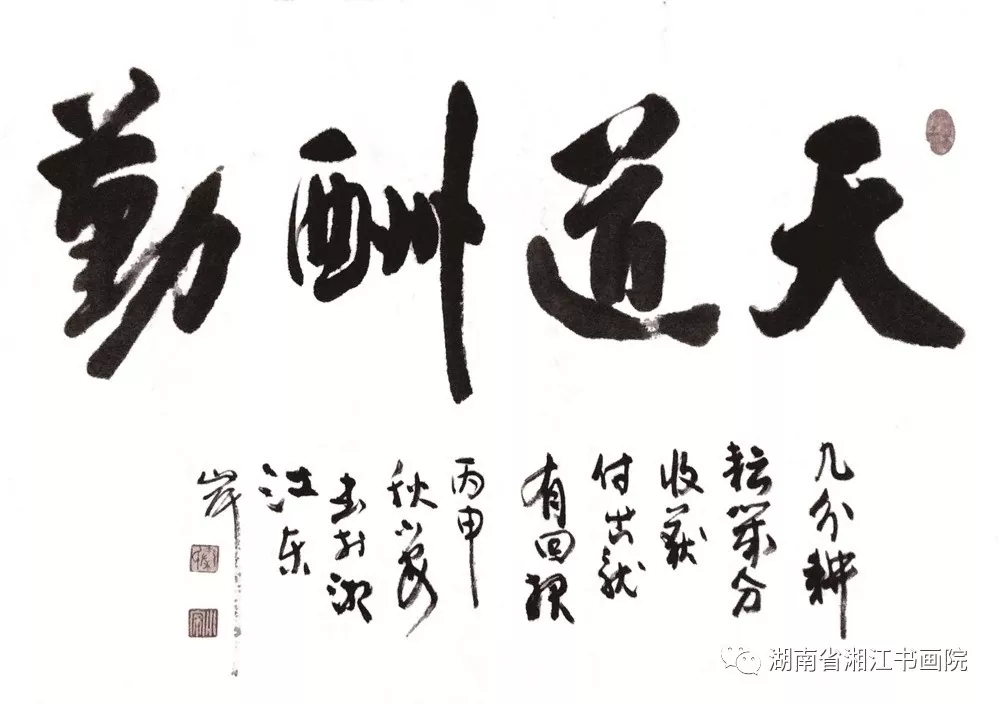 天道酬勤
几分耕
耘幾分
收获
付出就
有回报
丙申
秋小家
书于湘
江东
岸
湖南省湘江书画院